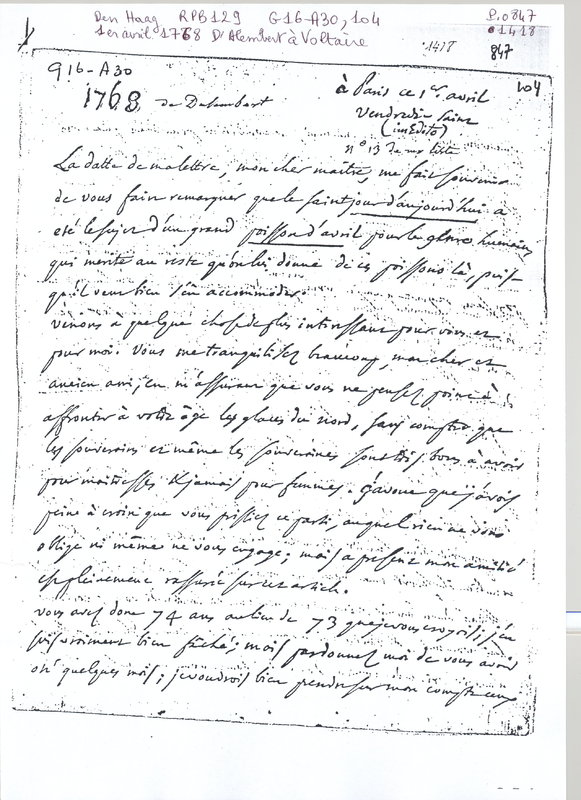 Den Haag RPB129 G16-A30, 104 P.0847
1er avril 1768 D'Alembert à Voltaire 01418
1418 847
G16-A30 104
1768 de Dalembert à Paris ce 1er avril
vendredi saint
(inédite)
n° 13 de ma liste
La datte de ma lettre, mon cher maitre, me fait souvenir
de vous faire remarquer que le saint jour d'aujourd'hui a
eté le sujet d'un grand poisson d'avril pour le genre humain,
qui merite au reste qu'on lui donne de ces poissons là, puis
qu'il veut bien s'en accommoder.
venons à quelque chose de plus interessant pour vous et
pour moi. Vous me tranquilisez beaucoup, mon cher et
ancien ami, en m'assurant que vous ne pensez point à
affronter à votre âge les glaces du nord, sans compter que
les souverains et même les souveraines sont très bons à avoir
pour maitresses & jamais pour femmes. j'avoue que j'avois
peine à croire que vous prissiez ce parti, auquel rien ne vous
oblige ni même ne vous engage; mais a present mon amitié
est pleinement rassurée sur cet article.
vous avez donc 74 ans au lieu de 73 que je vous croyois; j'en
suis vraiment bien fâché; mais pardonnez moi de vous avoir
oté quelques mois; je voudrois bien prendre sur mon compte ceux